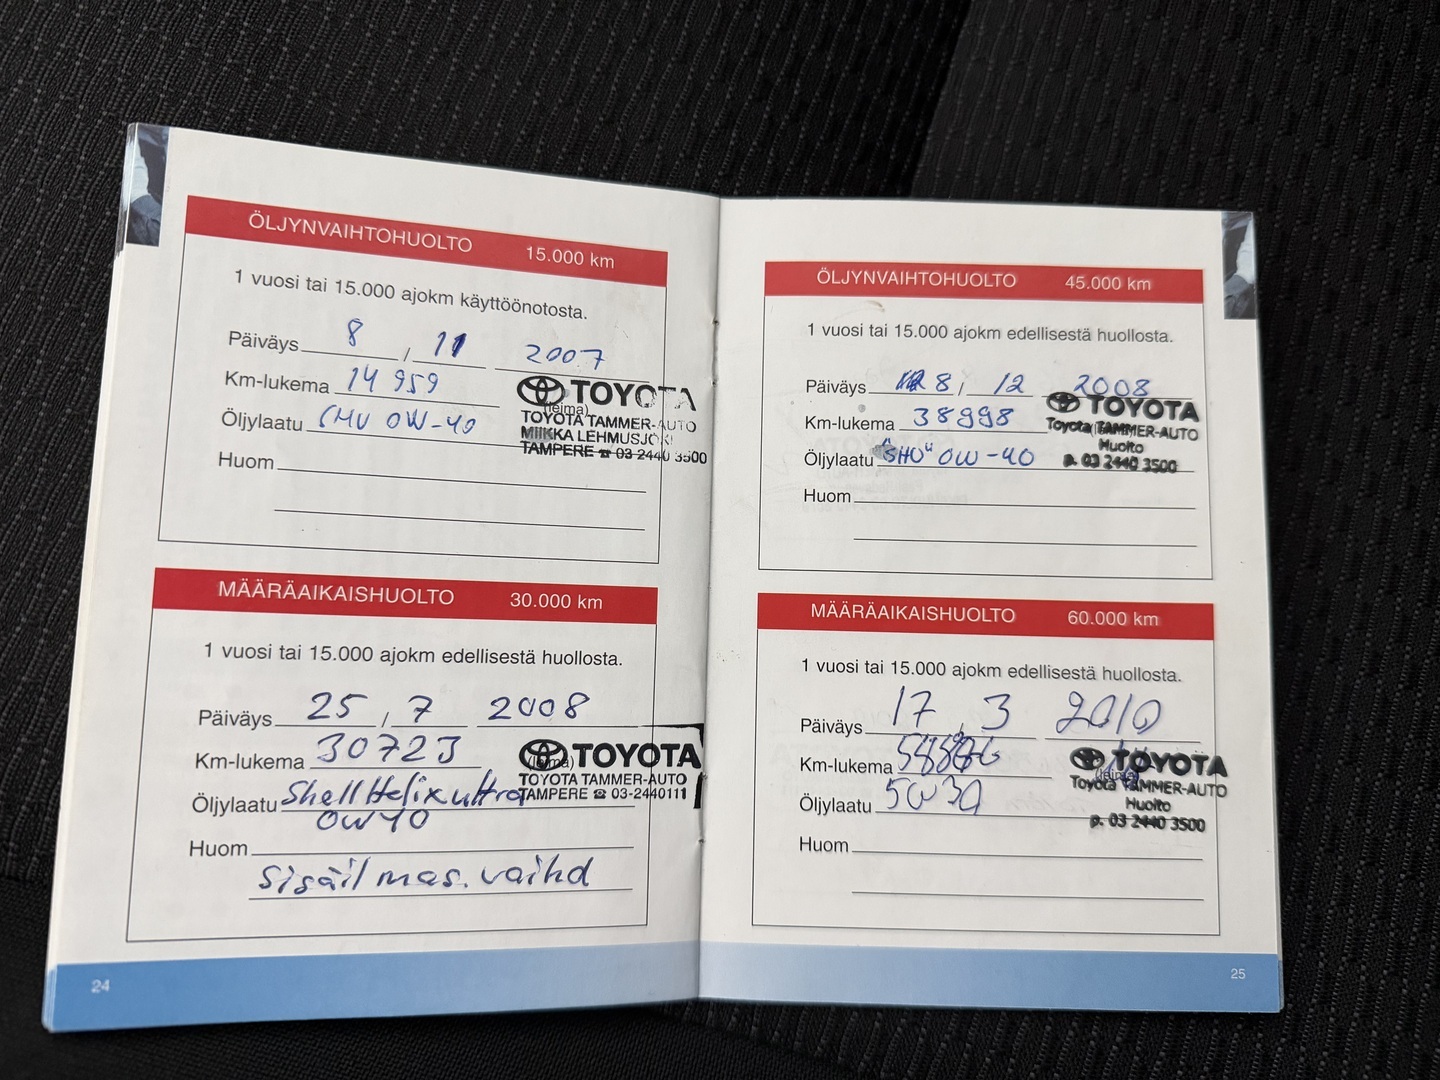 ÖLJYNVAIHTOHUOLTO 15.000 km
1 vuosi tai 15.000 ajokm käyttöönotosta.
Päiväys 8 / 11 2007
Km-lukema 14 959
(leima)
TOYOTA
Öljylaatu SHU 0W-40
TOYOTA TAMMER-AUTO
MIIKKA LEHMUSJOKI
TAMPERE ☎ 03 2440 3500
Huom
MÄÄRÄAIKAISHUOLTO 30.000 km
1 vuosi tai 15.000 ajokm edellisestä huollosta.
Päiväys 25 / 7 2008
Km-lukema 30723
(leima)
TOYOTA
TOYOTA TAMMER-AUTO
TAMPERE ☎ 03-2440111
Öljylaatu Shell Helix ultra
0W40
Huom
sisäil mas. vaihd
24
ÖLJYNVAIHTOHUOLTO 45.000 km
1 vuosi tai 15.000 ajokm edellisestä huollosta.
Päiväys 8 / 12 2008
Km-lukema 38998
TOYOTA
Toyota TAMMER-AUTO
Huolto
p. 03 2440 3500
Öljylaatu "SHU" 0W-40
Huom
MÄÄRÄAIKAISHUOLTO 60.000 km
1 vuosi tai 15.000 ajokm edellisestä huollosta.
Päiväys 17 / 3 2010
Km-lukema
(leima)
TOYOTA
Toyota TAMMER-AUTO
Huolto
p. 03 2440 3500
Öljylaatu 5W30
Huom
25